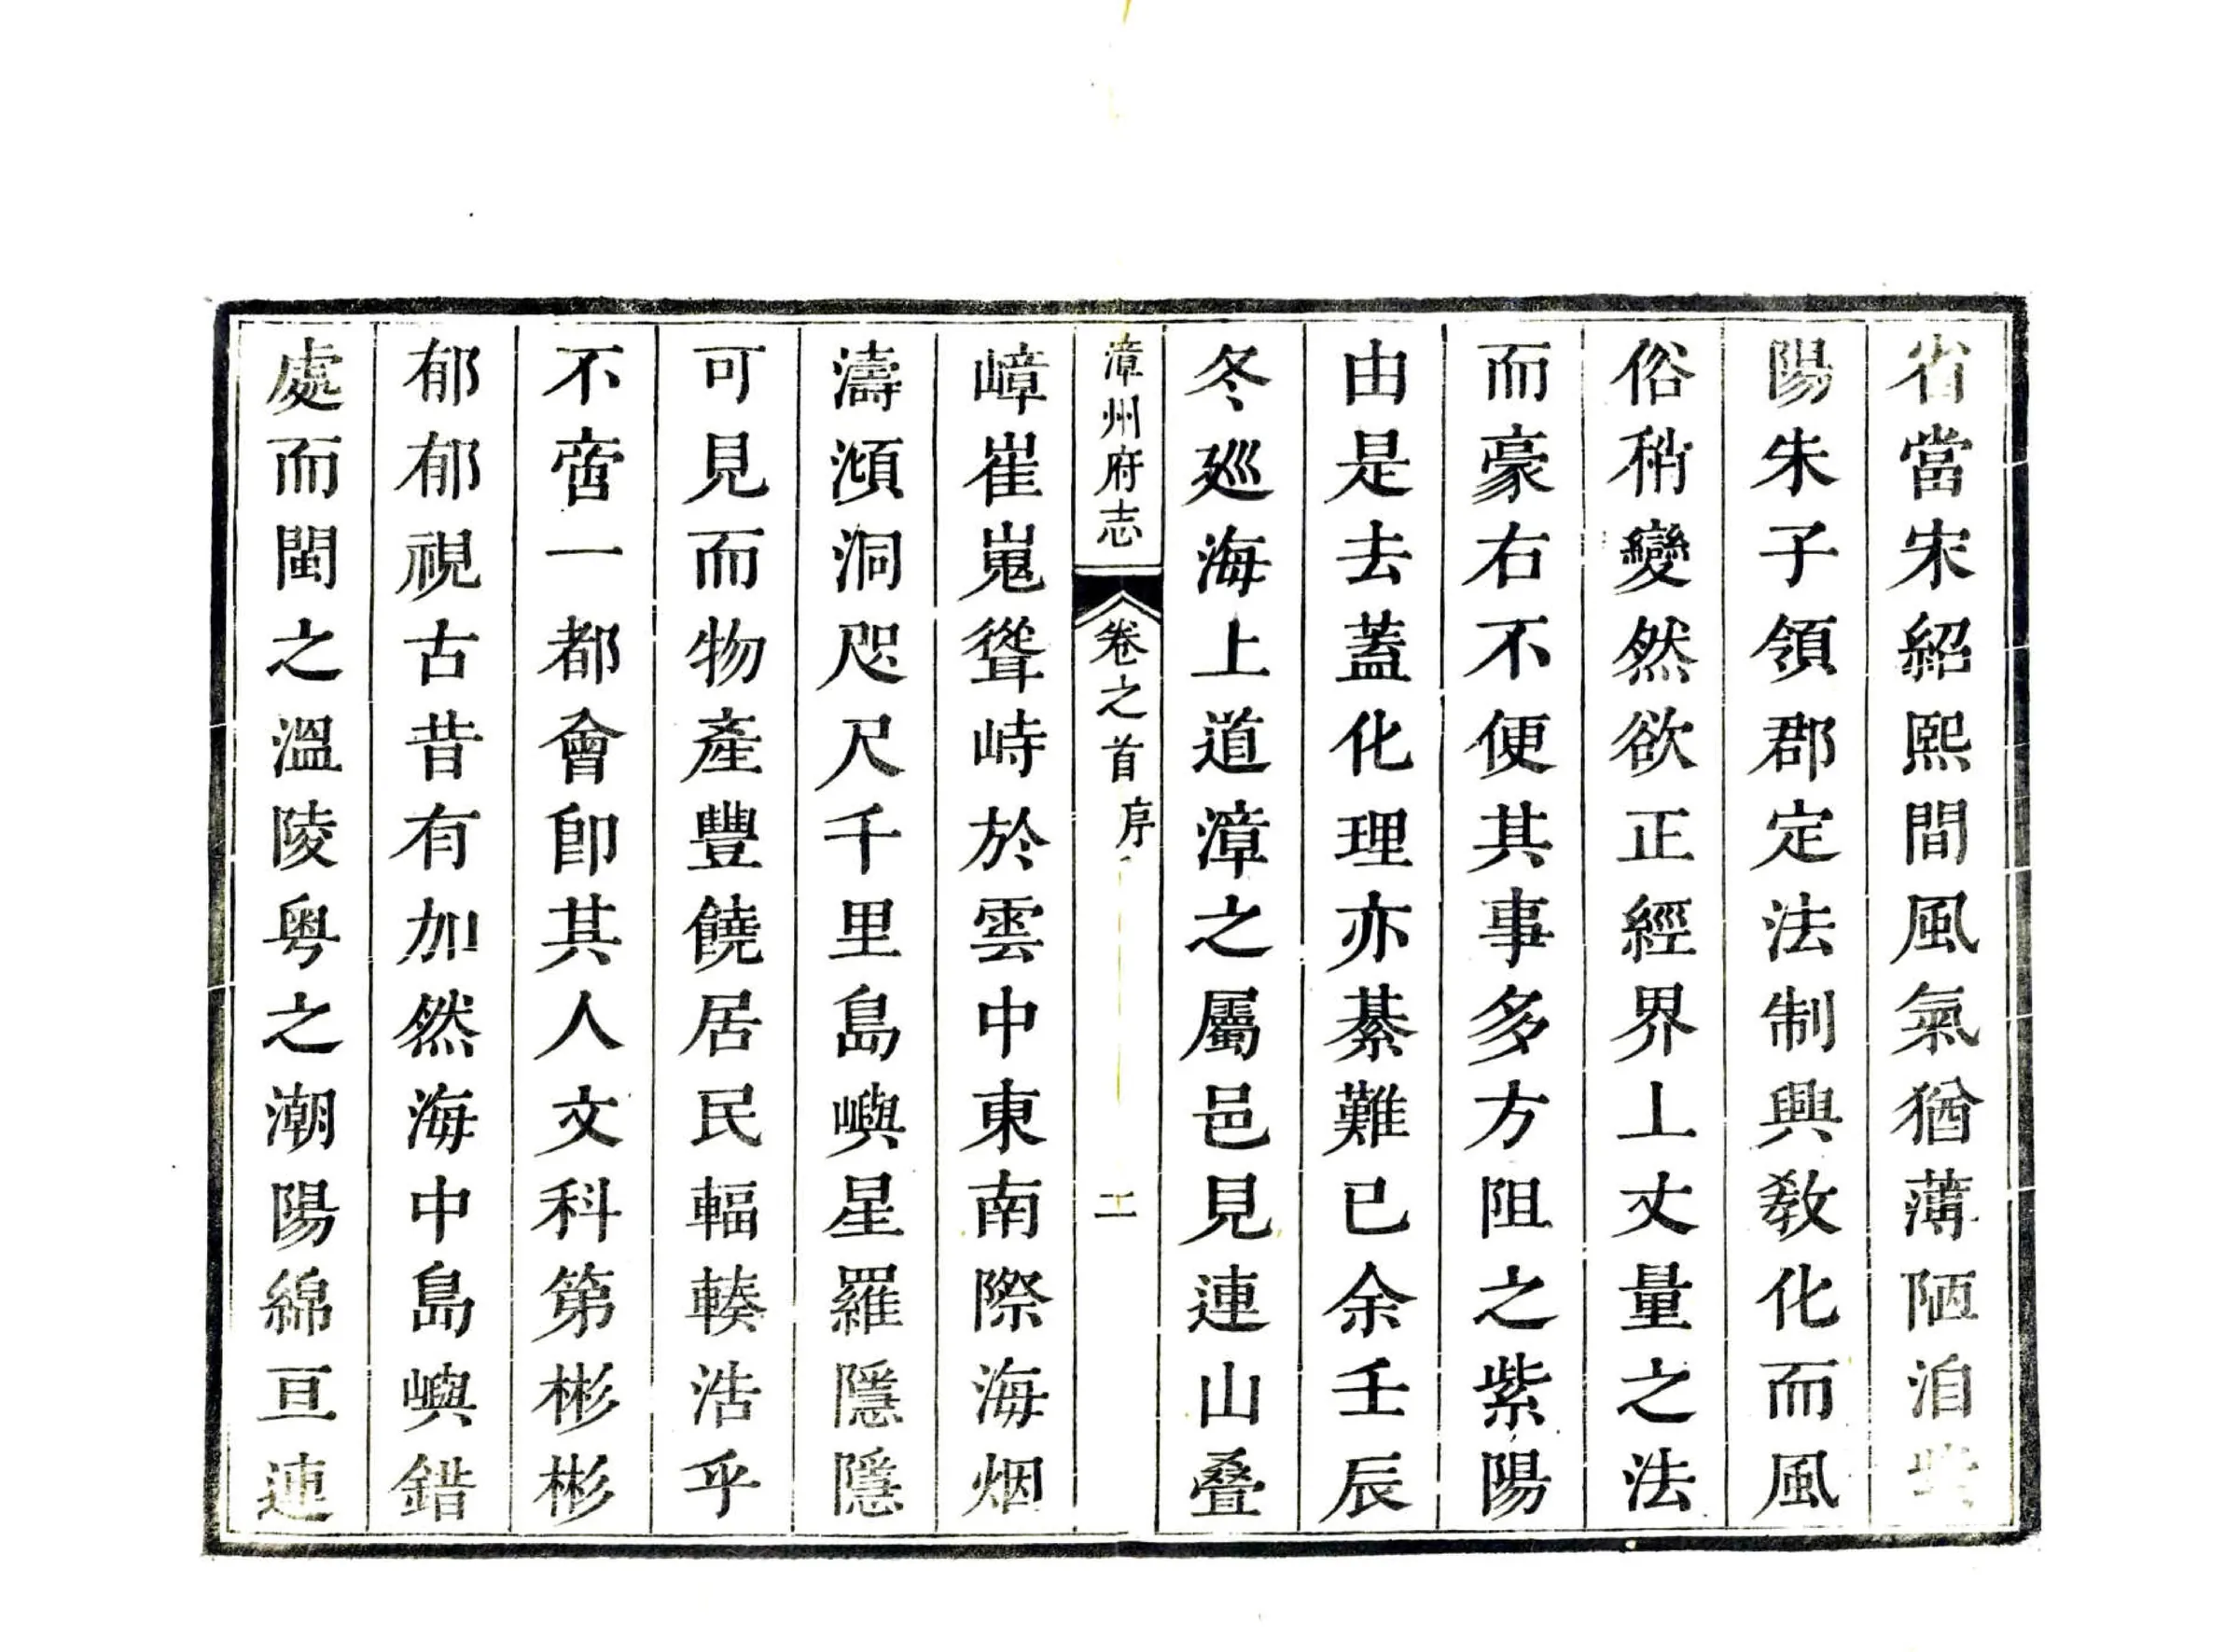 省當宋紹熙間風氣猶薄陋洎紫
陽朱子領郡定法制興教化而風
俗稍變然欲正經界上丈量之法
而豪右不便其事多方阻之紫陽
由是去蓋化理亦綦難已余壬辰
冬廵海上道漳之屬邑見連山叠
漳州府志
卷之首
序
二
嶂崔嵬聳峙於雲中東南際海烟
濤澒洞咫尺千里島嶼星羅隱隱
可見而物產豐饒居民輻輳浩乎
不啻一都會卽其人文科第彬彬
郁郁視古昔有加然海中島嶼錯
處而閩之溫陵粵之潮陽綿亘連